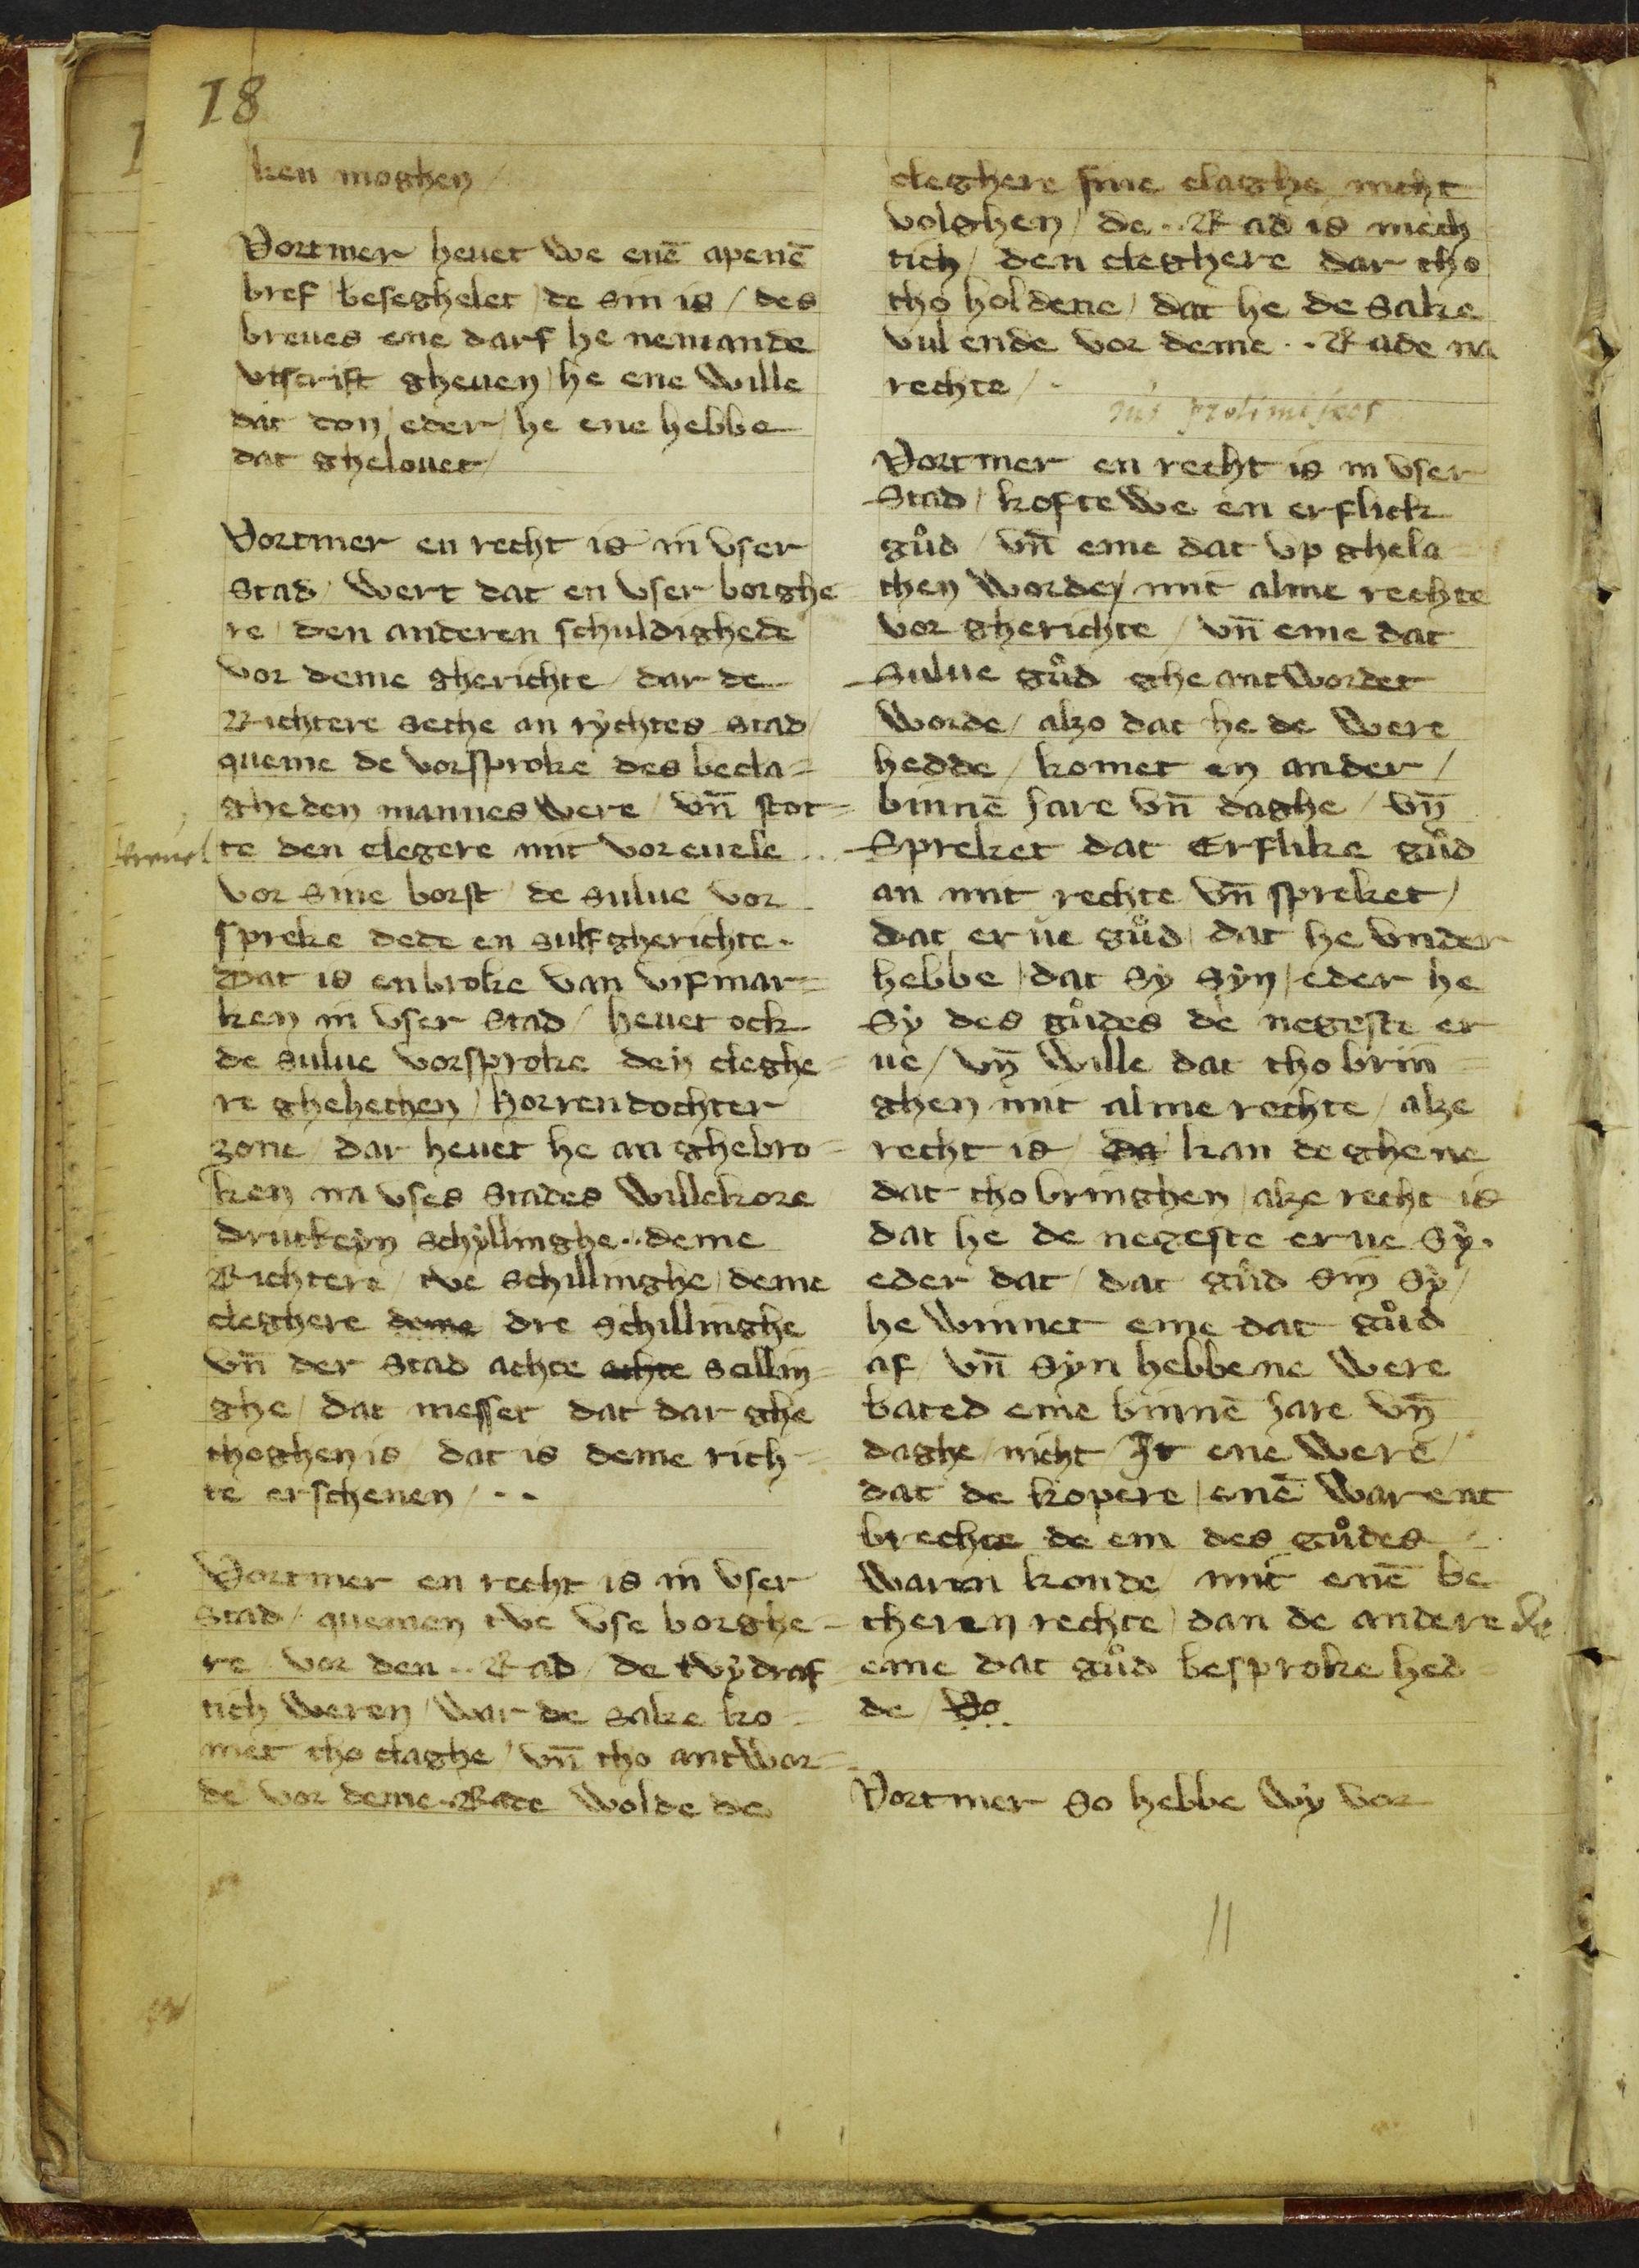 18
ken moghen /
Vortmer heuet we enē apenē
bref beseghelet / de sin is / des
breues ene darf he nemande
vtscrift gheuen / he ene wille
dat don / eder / he ene hebbe
dat ghelouet /
Vortmer en recht is in vser
Stad / wert dat en vser borghe-
re / den anderen schuldighede
vor deme gherichte / dar de
Richtere sethe an rÿchtes stad /
queme de vorsproke des becla=
gheden mannes were / vn̄ stot=
te den clegere mit vor euele
vor sine borst / de sulue vor
spreke dede en sulfgherichte.
Dat is en broke van vif mar=
ken in vser Stad / heuet ock
de sulue vorsproke den cleghe=
re ghehethen / horrendochter
zone / dar heuet he an ghebro=
ken na vses Stades willekore
drutteÿn schÿllinghe .. deme
Richtere / twe schillinghe / deme
cleghere deme dre schillinghe
vn̄ der Stad achte achte scillin=
ghe / dat messet dat dar ghe
thoghen is / dat is deme rich=
te erschenen / . .
Vortmer en recht is in vser
Stad / quemen twe vse borghe=
re / vor den .. Rad / de twÿdraf
tich weren / war de sake ko=
met tho claghe / vn̄ tho antwor=
de vor deme .. Rade wolde de
cleghere sine claghe nicht
volghen / de .. Rad is mech
tich / den cleghere dar tho
tho holdene / dat he de Sake
vul ende vor deme .. Rade na
rechte / .
Ius protimiseos
Vortmer en recht is in vser
Stad / kofte we en erflick
gůd / vn̄ eme dat vp ghela=
then worde / mit alme rechte
vor gherichte / vn̄ eme dat
Sulue gůd ghe antwordet
worde / alzo dat he de were
hedde / komet en ander /
binnē Jare vn̄ daghe / vn̄
Spreket dat Erflike gůd
an mit rechte vn̄ spreket /
dat erue gůd / dat he vnder
hebbe / dat sÿ sÿn / eder he
sÿ des gůdes de negeste er
ue / vn̄ wille dat tho brin=
ghen mit alme rechte / alze
recht is / da kan de ghene
dat tho bringhen / alze recht is
dat he de negeste erue sÿ.
eder dat / dat gůd sin sÿ /
he winnet eme dat gůd
af / vn̄ sÿn hebbene were
bated eme binnē Jare vn̄
daghe / nicht / It ene were /
dat de kopere / enē warent
brechte de em des gůdes
waren konde mit enē be
theren rechte / dan de andere de
eme dat gůd besproke hed=
de / Vo
Vortmer so hebbe wÿ vor